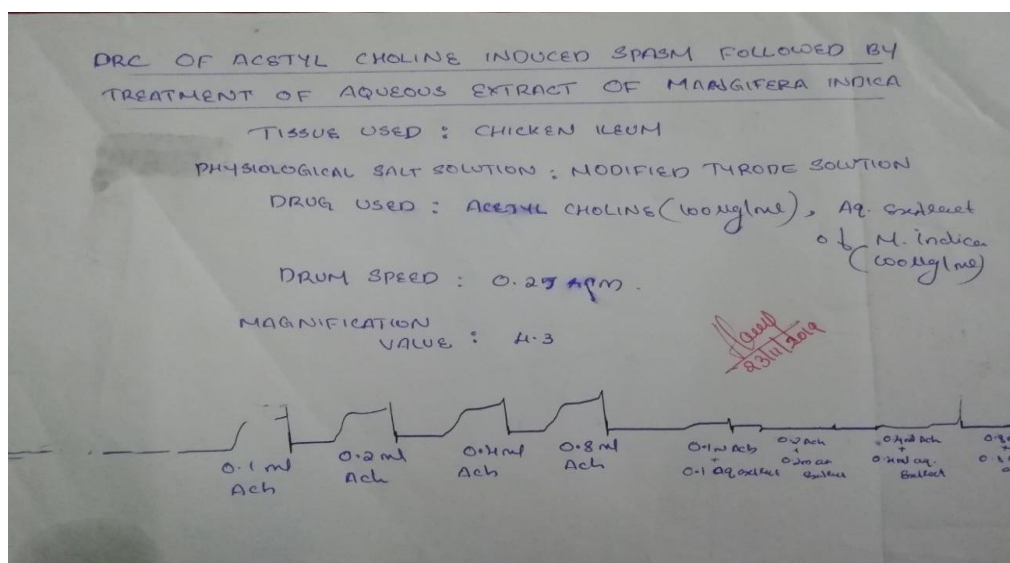 DRC OF ACETYL CHOLINE INDUCED SPASM FOLLOWED BY
TREATMENT OF AQUEOUS EXTRACT OF MANGIFERA INDICA
TISSUE USED : CHICKEN ILEUM
PHYSIOLOGICAL SALT SOLUTION : MODIFIED TYRODE SOLUTION
DRUG USED : ACETYL CHOLINE (100 µg/ml), Aq. extract
of M. indica
(100 µg/ml)
DRUM SPEED : 0.25 rpm.
MAGNIFICATION
VALUE : 4.3
23/11/2019
0.1 ml
Ach
0.2 ml
Ach
0.4 ml
Ach
0.8 ml
Ach
0.1 ml Ach
+
0.1 Aq extract
Ach
+
extract
0.4 ml Ach
+
0.4 ml aq.
Extract